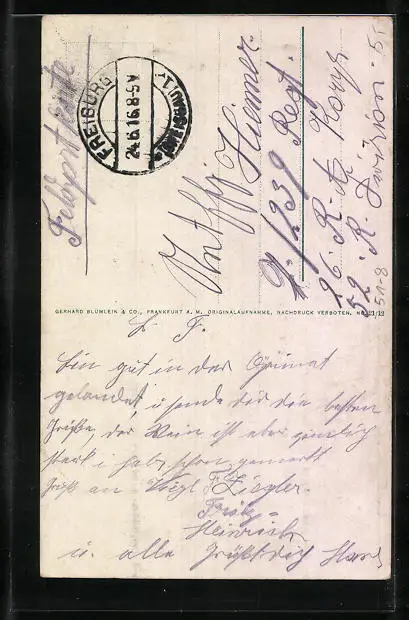 Feldpostkarte
FREIBURG
24.6.16.8-9V
(BREISGAU) 1
Untffz. Hiemer.
239 Regt.
26. R. Korps
52. R. Division
51-8
GERHARD BLÜMLEIN & CO., FRANKFURT A. M. ORIGINALAUFNAHME, NACHDRUCK VERBOTEN.
L. F.
Bin gut in der Heimat
gelandet, u. sende dir die besten
Grüße, der Wein ist aber ziemlich
stark i hab schon gemerkt
Gruß an Vizef. Ziegler.
Fritz
Heinrich
u. alle Grüßt dich